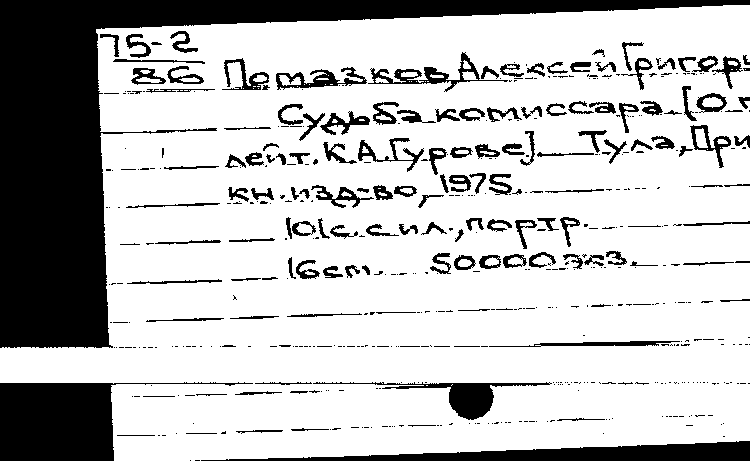 75-2
86 Помазков, Алексей Григорь
Судьба комиссара. [О г
лейт. К.А.Гурове]. Тула, При
кн. изд-во, 1975.
101с. с ил., портр.
16см. 50000 экз.